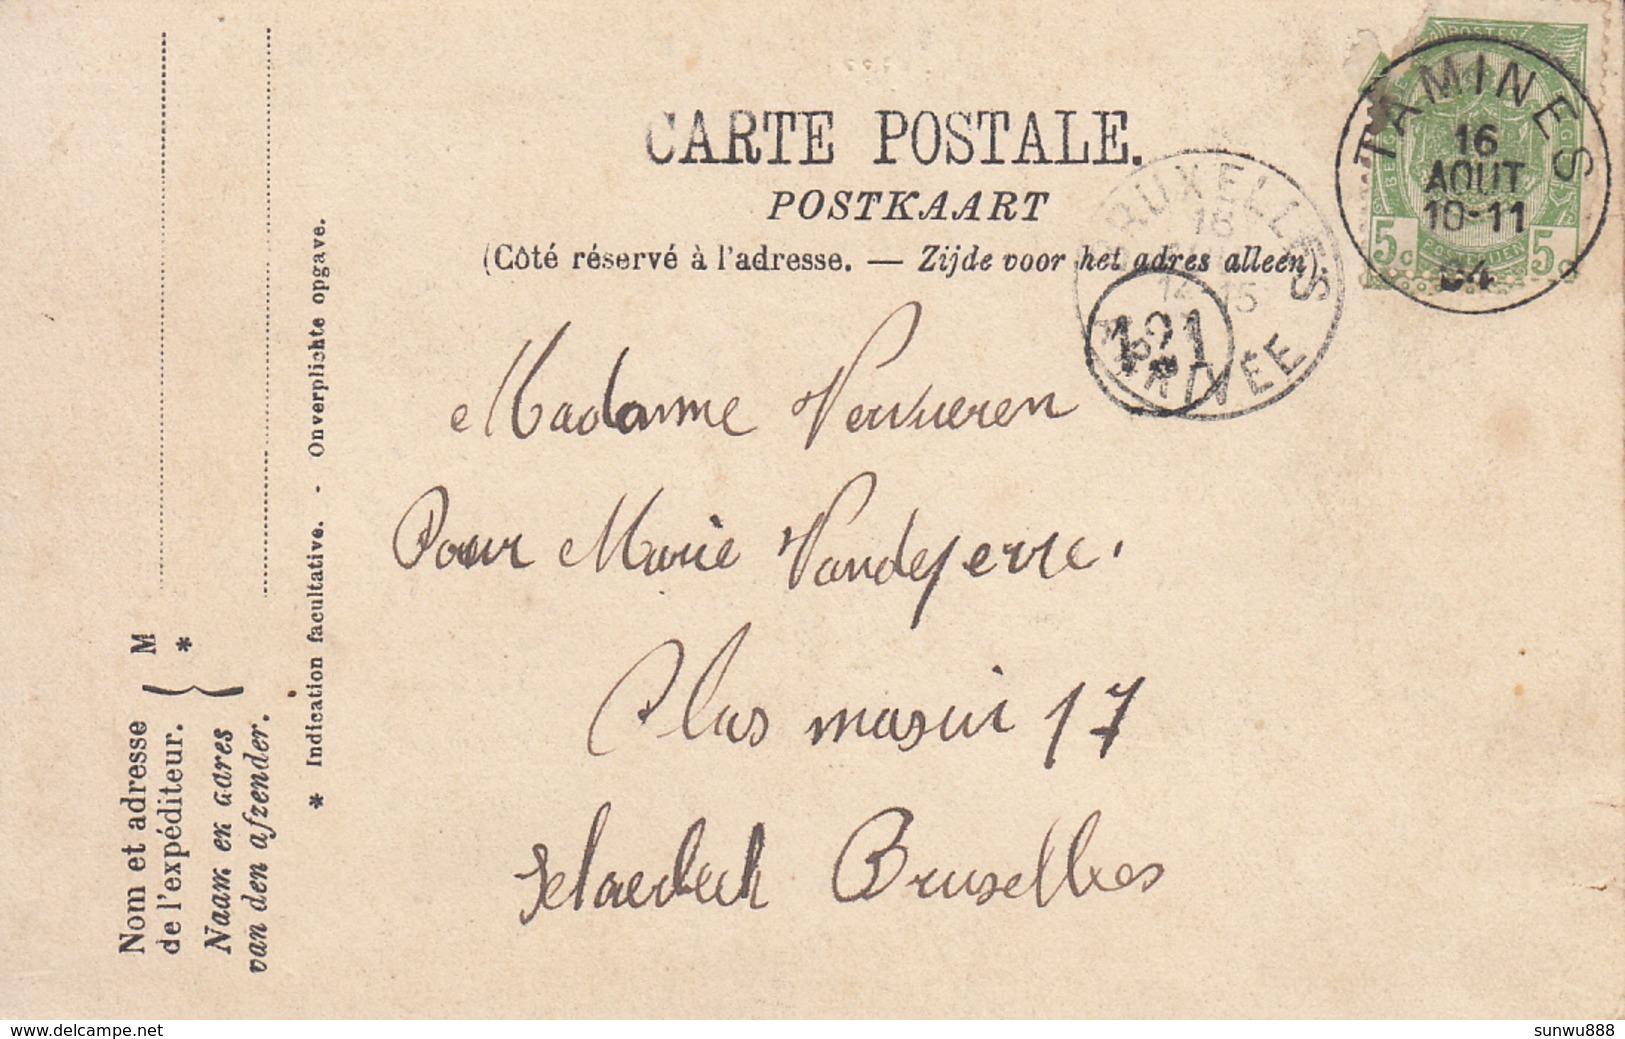 CARTE POSTALE.
POSTKAART
(Côté réservé à l'adresse. — Zijde voor het adres alleen).
POSTES
5c 5c
TAMINES
16
AOUT
10-11
04
BRUXELLES
16
14-15
ARRIVÉE
121
Madame Ververen
Pour Marie Vandeperre.
Plas masui 17
Schaerbeek Bruxelles
Nom et adresse
de l'expéditeur.
Naam en adres
van den afzender.
M
*
* Indication facultative. - Onverplichte opgave.
www.delcampe.net
sunwu888